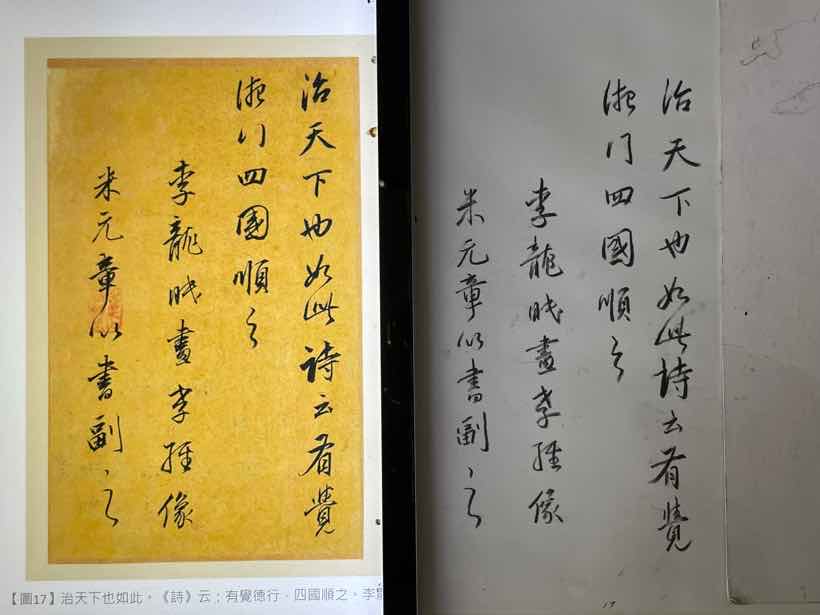 治天下也如此詩云有覺
德行四國順之
李龍眠畫孝經像
米元章以書副之
【圖17】治天下也如此，《詩》云：有覺德行，四國順之，李龍
治天下也如此詩云有覺
德行四國順之
李龍眠畫孝經像
米元章以書副之